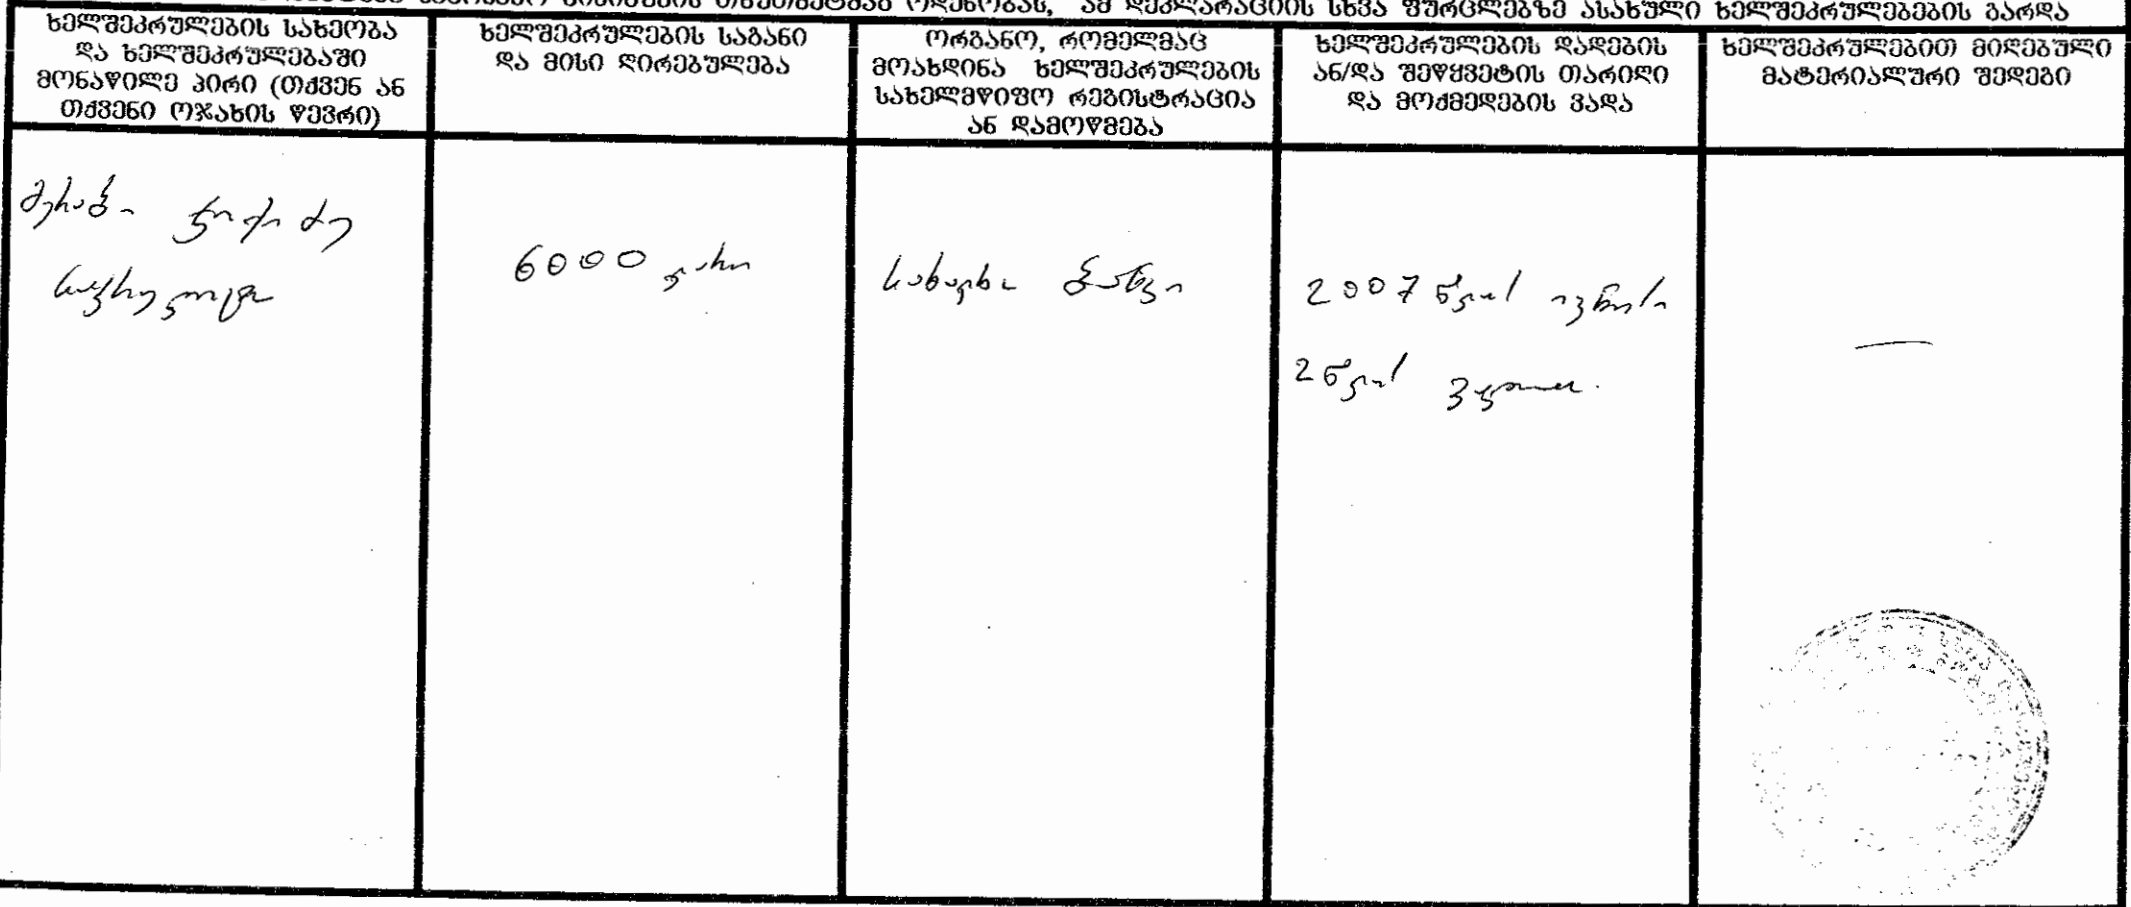 ოდენობას, ამ დეკლარაციის სხვა ფურცლებზე ასახული ხელშეკრულებების გარდა
ხელშეკრულების სახეობა
და ხელშეკრულებაში
მონაწილე პირი (თქვენ ან
თქვენი ოჯახის წევრი)
ხელშეკრულების საგანი
და მისი ღირებულება
ორგანო, რომელმაც
მოახდინა ხელშეკრულების
სახელმწიფო რეგისტრაცია
ან დამოწმება
ხელშეკრულების დადების
ან/და შეწყვეტის თარიღი
და მოქმედების ვადა
ხელშეკრულებით მიღებული
მატერიალური შედეგი
მერაბი
6000 ლარი
ბანკი
2007 წლის ივნისი
2 წლის ვადით
—